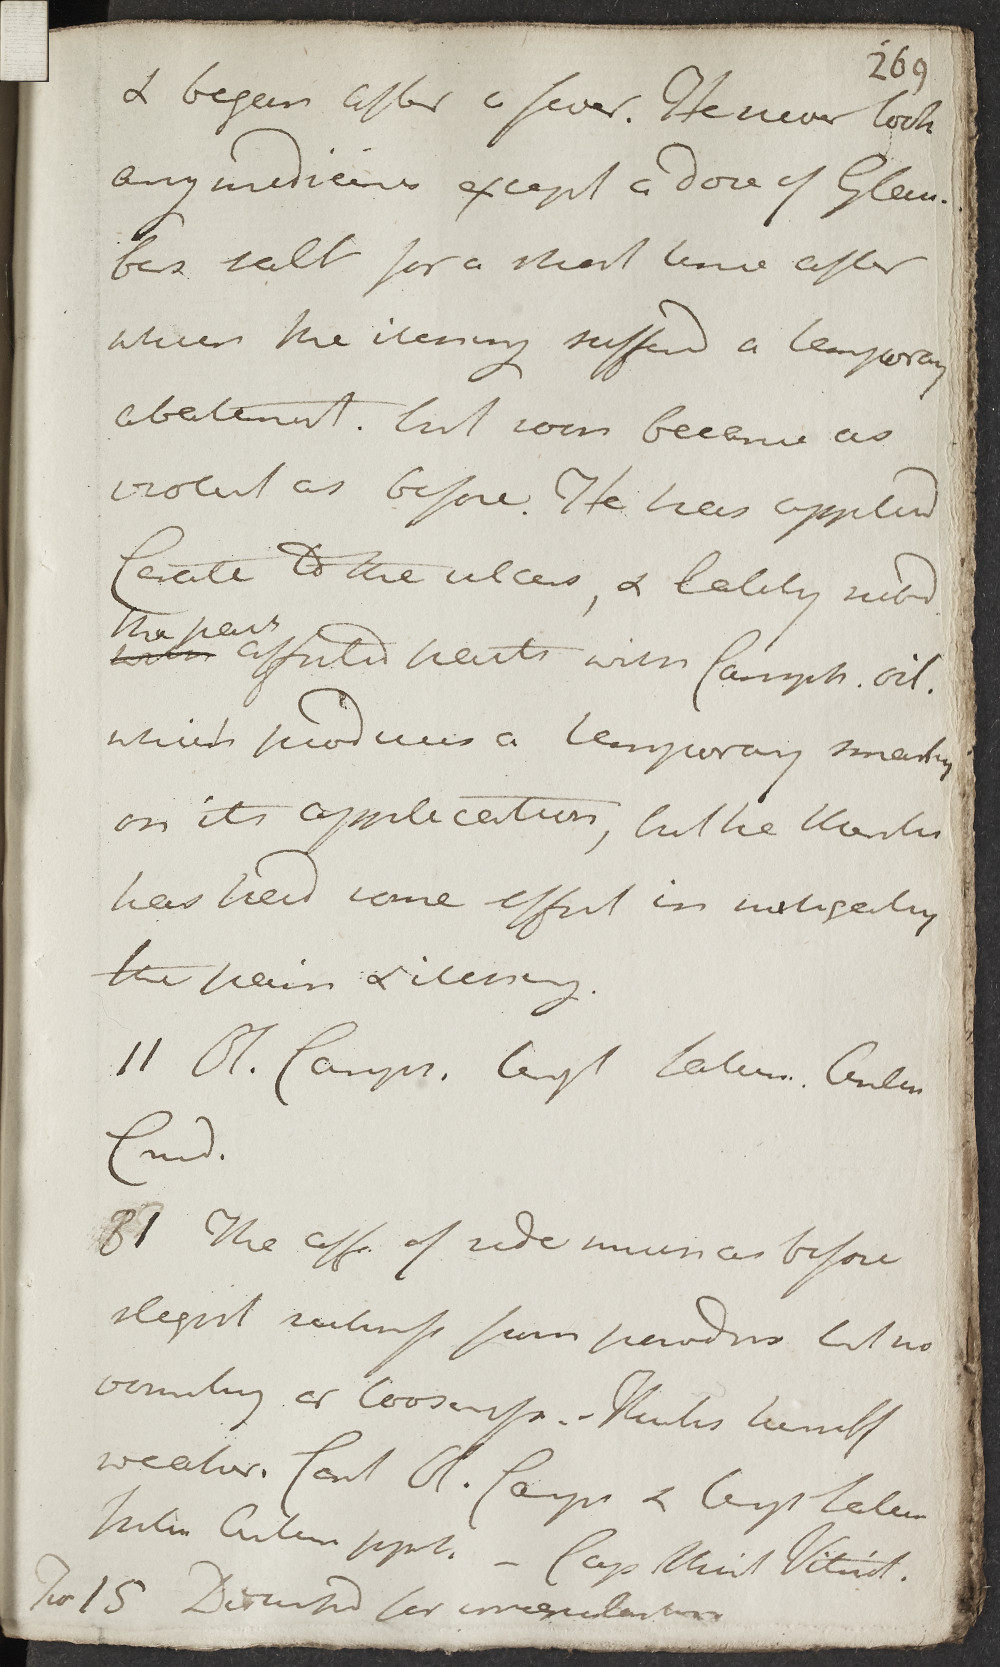 269
& began after a fever. He never took
any medicines except a dose of Glau-
bers salt for a short time after
when the itching suffered a temporary
abatement. but soon became as
violent as before. He has applied
Cerate to the ulcers, & lately rubd
the parts
affected parts with Camph. oil.
which produces a temporary smarting
on its application, but he thinks
has had some effect in mitigating
the pain & itching.
11 Ol. Camph. Ungt
Crud.
81 The aff. of side much as before
slight sickness from powders but no
vomiting or looseness. - Thinks himself
weaker. Cont Ol. Camph & Ungt
ppt. - Cap
15 Dismissed for